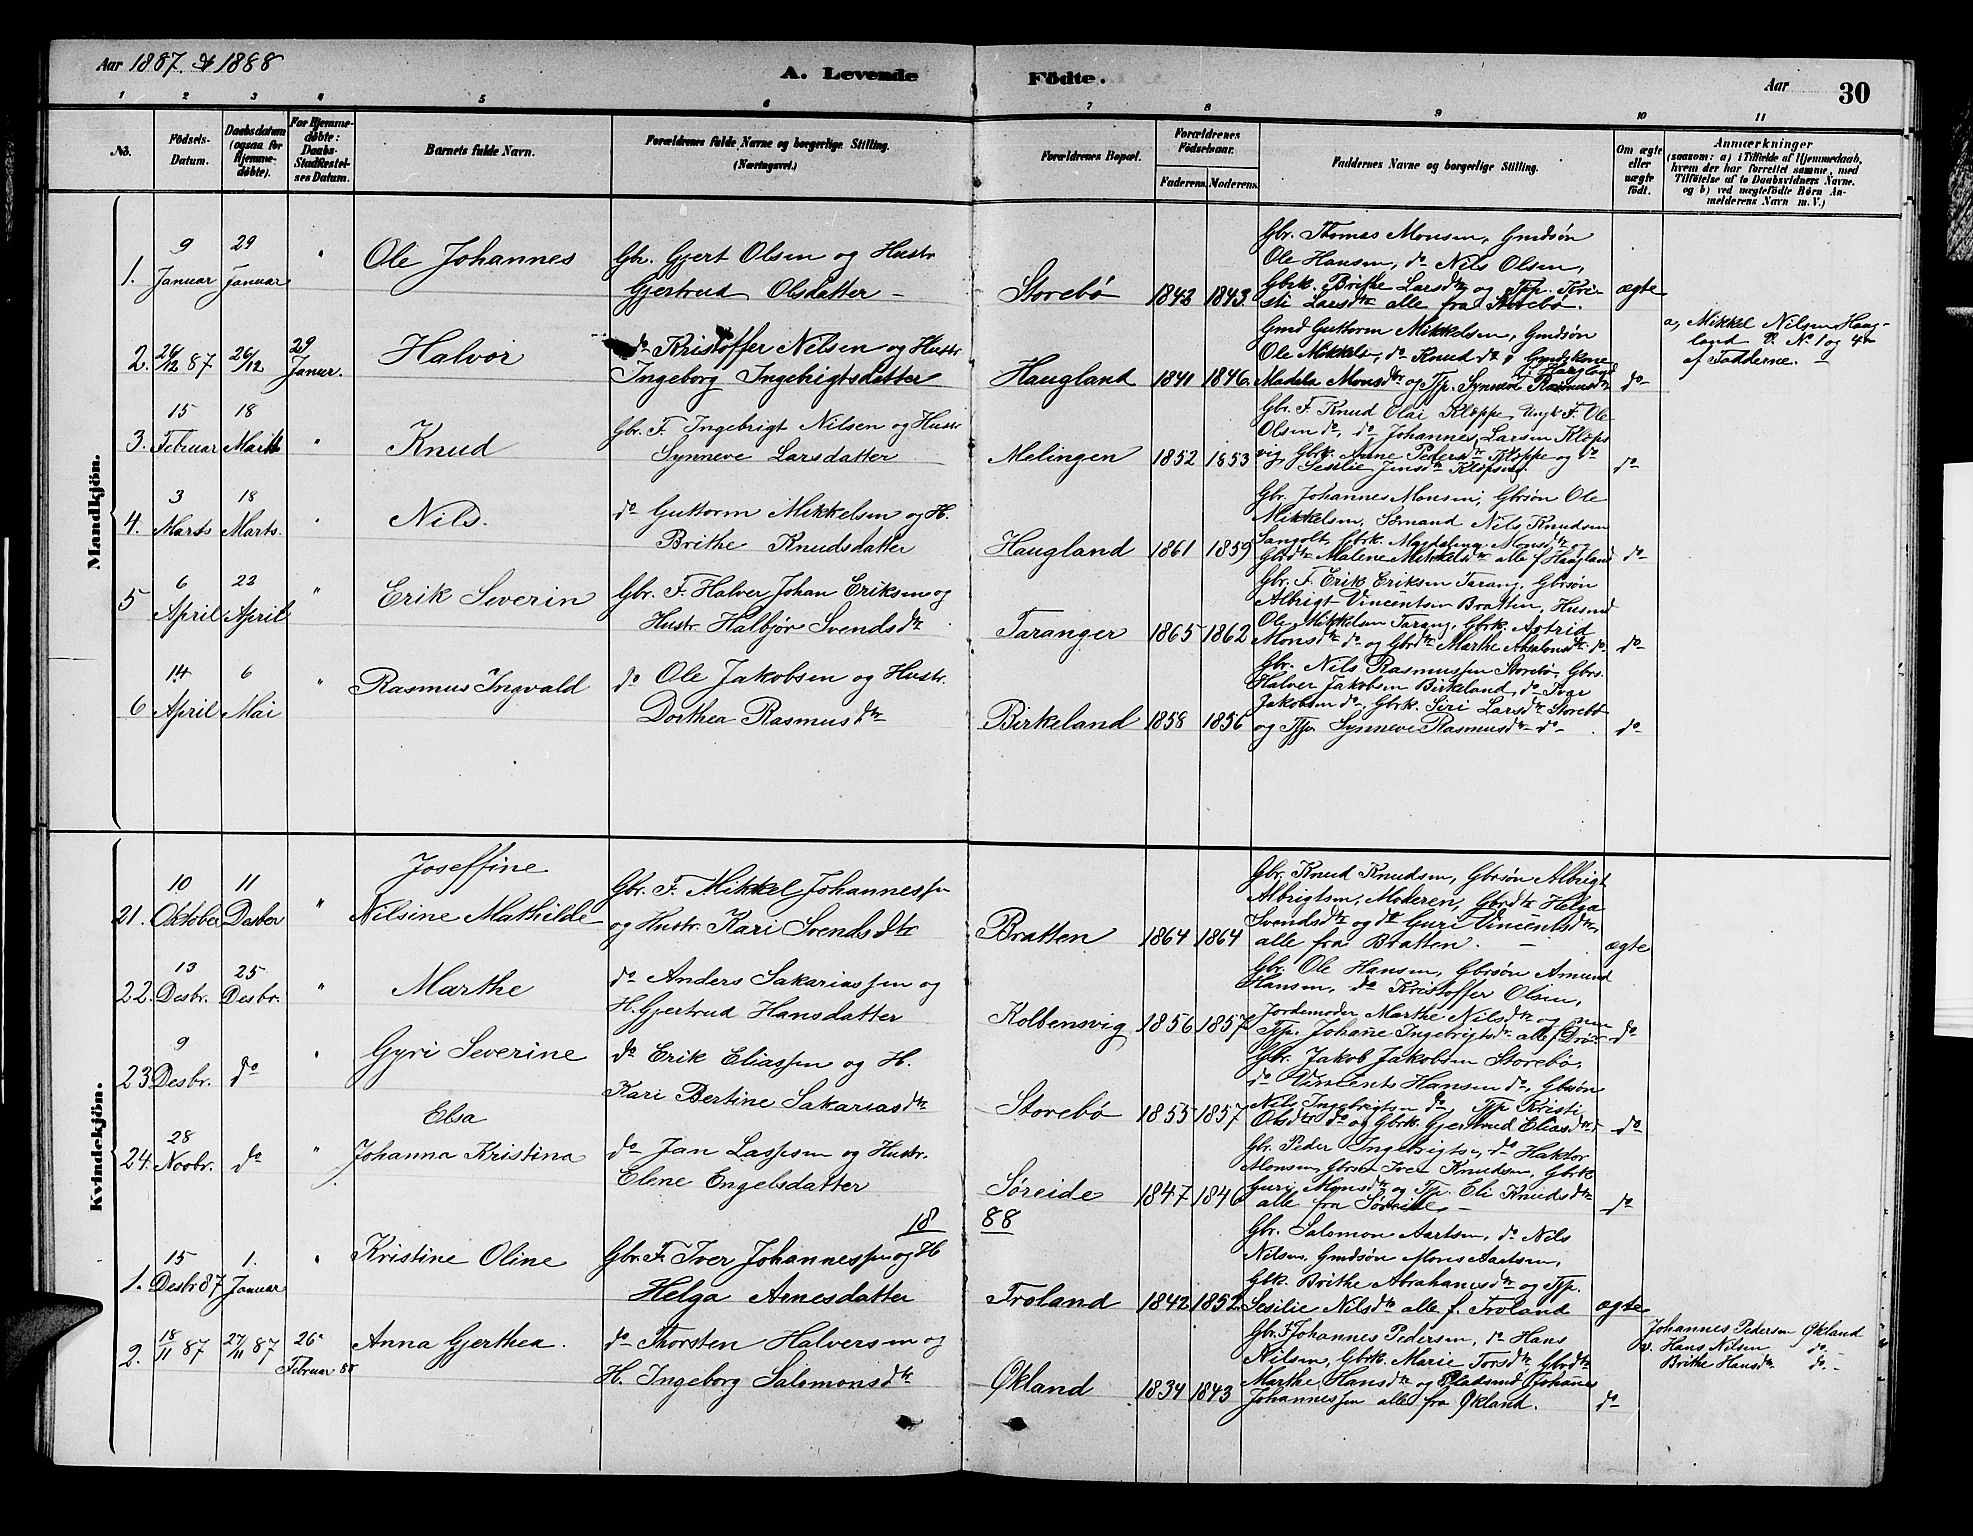 Aar 1887. & 1888
A. Levende Födte.
Aar 30
1 2 3 4 5 6 7 8 9 10 11
No.
Födsels-Datum.
Daabsdatum (ogsaa for Hjemmedöbte).
For Hjemmedöbte: Daabs Stadfæstelses Datum.
Barnets fulde Navn.
Forældrenes fulde Navne og borgerlige Stilling. (Næringsvei.)
Forældrenes Bopæl.
Forældrenes Födselsaar.
Faderens. Moderens.
Faddernes Navne og borgerlige Stilling.
Om ægte eller uægte födt.
Anmærkninger
(saasom: a) i Tilfælde af Hjemmedaab, hvem der har forrettet samme, med Tilföielse af to Daabsvidners Navne, og b) ved uægtefödte Börn Anmelderens Navn m. V.)
Mandkjön.
1. 9 Januar 29 Januar " Ole Johannes
Gbr. Gjert Olsen og Hustr
Gjertrud Olsdatter –
Storebø 1843 1843.
Gbr. Thomas Monsen, Gmdsøn
Ole Hansen, do Nils Olsen,
Gbrk. Brithe Larsdtr og Tjp. Kri-
sti Larsdtr alle fra Storebø.
ægte
2. 26/12 87 26/12 29 Januar. Halvor
do Kristoffer Nilsen og Hustr
Ingeborg Ingebrigtsdatter
Haugland 1841 1846.
Gmd Guttorm Mikkelsen, Gmdsøn
Ole Mikkels, do Knud do, Gmdskone
Madela Monsdtr og Tjp. Synneve Rasmusdtr
f. Haugland
do
a, Mikkel Nilsen Haug-
land 2. No 1 og 4
af Fadderne. –
3. 15 Februar 18 Marts " Knud
Gbr. F. Ingebrigt Nilsen og Hustr
Synneve Larsdatter
Melingen 1852 1853
Gbr. F. Knud Olai Kloppe, Ungk F. Ole
Olsen do, do Johannes Larsen Klops
vig, Gbrk. Anne Pedersdtr Kloppe og do
Sesilie Jensdtr Klopsvig.
do
4. 3 Marts 18 Marts. " Nils.
do Guttorm Mikkelsen og H.
Brithe Knudsdatter
Haugland 1861 1859
Gbr. Johannes Monsen, Gbrsøn Ole
Mikkelsen, Sømand Nils Knudsen
Sangolt, Gbrk. Magdalena Monsdtr og
Gbrdtr Malene Mikkelsdtr alle f. Haugland
do
5 6 April 22 April " Erik Severin
Gbr. F. Halver Johan Eriksen og
Hustr. Halbjør Svendsdtr
Taranger 1865 1862
Gbr. F. Erik Eriksen Tarang, Gbrsøn
Albrigt Vincentsen Bratten, Husmd
Ole Mikkelsen Tarang, Gbrk. Astrid
Monsdtr do og Gbrdtr Marthe Absalonsdtr do
do
6 14 April 6 Mai " Rasmus Ingvald
do Ole Jakobsen og Hustr.
Dorthea Rasmusdtr
Birkeland 1858 1856
Gbr. Nils Rasmussen Storebø, Gbrs.
Halver Jakobsen Birkeland, do Ivar
Jakobsen do, Gbrk. Siri Larsdtr Storebø
og Tjp. Synneve Rasmusdtr do
do
Kvindekjön.
21. 10 Oktober 11 Desber " Joseffine
Nilsine Mathilde
Gbr. F. Mikkel Johannessen
og Hustr. Kari Svendsdtr
Bratten 1864 1864
Gbr. Knud Knudsen, Gbrsøn Albrigt
Albrigtsen, Moderen, Gbrdtr Helga
Svendsdtr og do Guri Vincentsdtr,
alle fra Bratten. –
ægte
22. 13 Desbr. 25 Desbr. " Marthe
do Anders Sakariassen og
H. Gjertrud Hansdatter
Kolbensvig 1856 1857
Gbr. Ole Hansen, Gbrsøn Amund
Hansen, do Kristoffer Olsen,
Jordemoder Marthe Nilsdtr og
Tjp. Johane Ingebrigtsdtr alle f.
do
23. 9 Desbr. do " Gyri Severine
do Erik Eliassen og H.
Kari Bertine Sakariasdtr
Storebø 1855 1857
Gbr. Jakob Jakobsen Storebø,
do Vincents Hansen do, Gbrsøn
Nils Ingebrigtsen do, Tjp Kristi
Olsdtr do og Gbrk. Gjertrud Eliasdtr
do
24. 28 Novbr. do " Elsa
Johanna Kristina
do Jan Lassesen og Hustr.
Elene Engelsdatter
Søreide 1847 1846
Gbr. Peder Ingebrigts., do Haktor
Monsen, Gbrsøn Iver Knudsen, Gbrk
Guri Monsdtr og Tjp. Eli Knudsdtr
alle fra Søreide –
do
18 88
1. 15 Desbr 87 1. Januar " Kristine Oline
Gbr. F. Iver Johannessen og H
Helga Arnesdatter
Troland 1842 1852
Gbr. Salomon Aartsen, do Nils
Nilsen, Gmdsøn Mons Aartsen,
Gbk. Brithe Abrahamsdtr og Tjp.
Sesilie Nilsdtr alle f. Troland
ægte
2. 18/11 87 27/11 87 26 Februar 88 Anna Gjerthea.
do Thorsten Halversen og
H. Ingeborg Salomonsdtr
Økland 1834 1843
Gbr. F Johannes Pedersen, do Hans
Nilsen, Gbrk. Marie Torsdtr Gbrdtr
Marthe Hansdtr og Pladsmd Johanes
Johannessen alle fra Økland.
do
Johannes Pedersen Økland
v. Hans Nilsen do –
Brithe Hansdtr. do. –